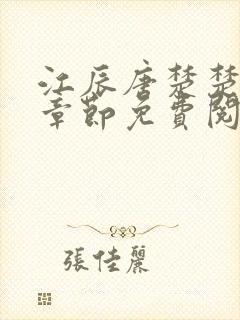 江辰唐楚楚
章節免費閱
張佳麗